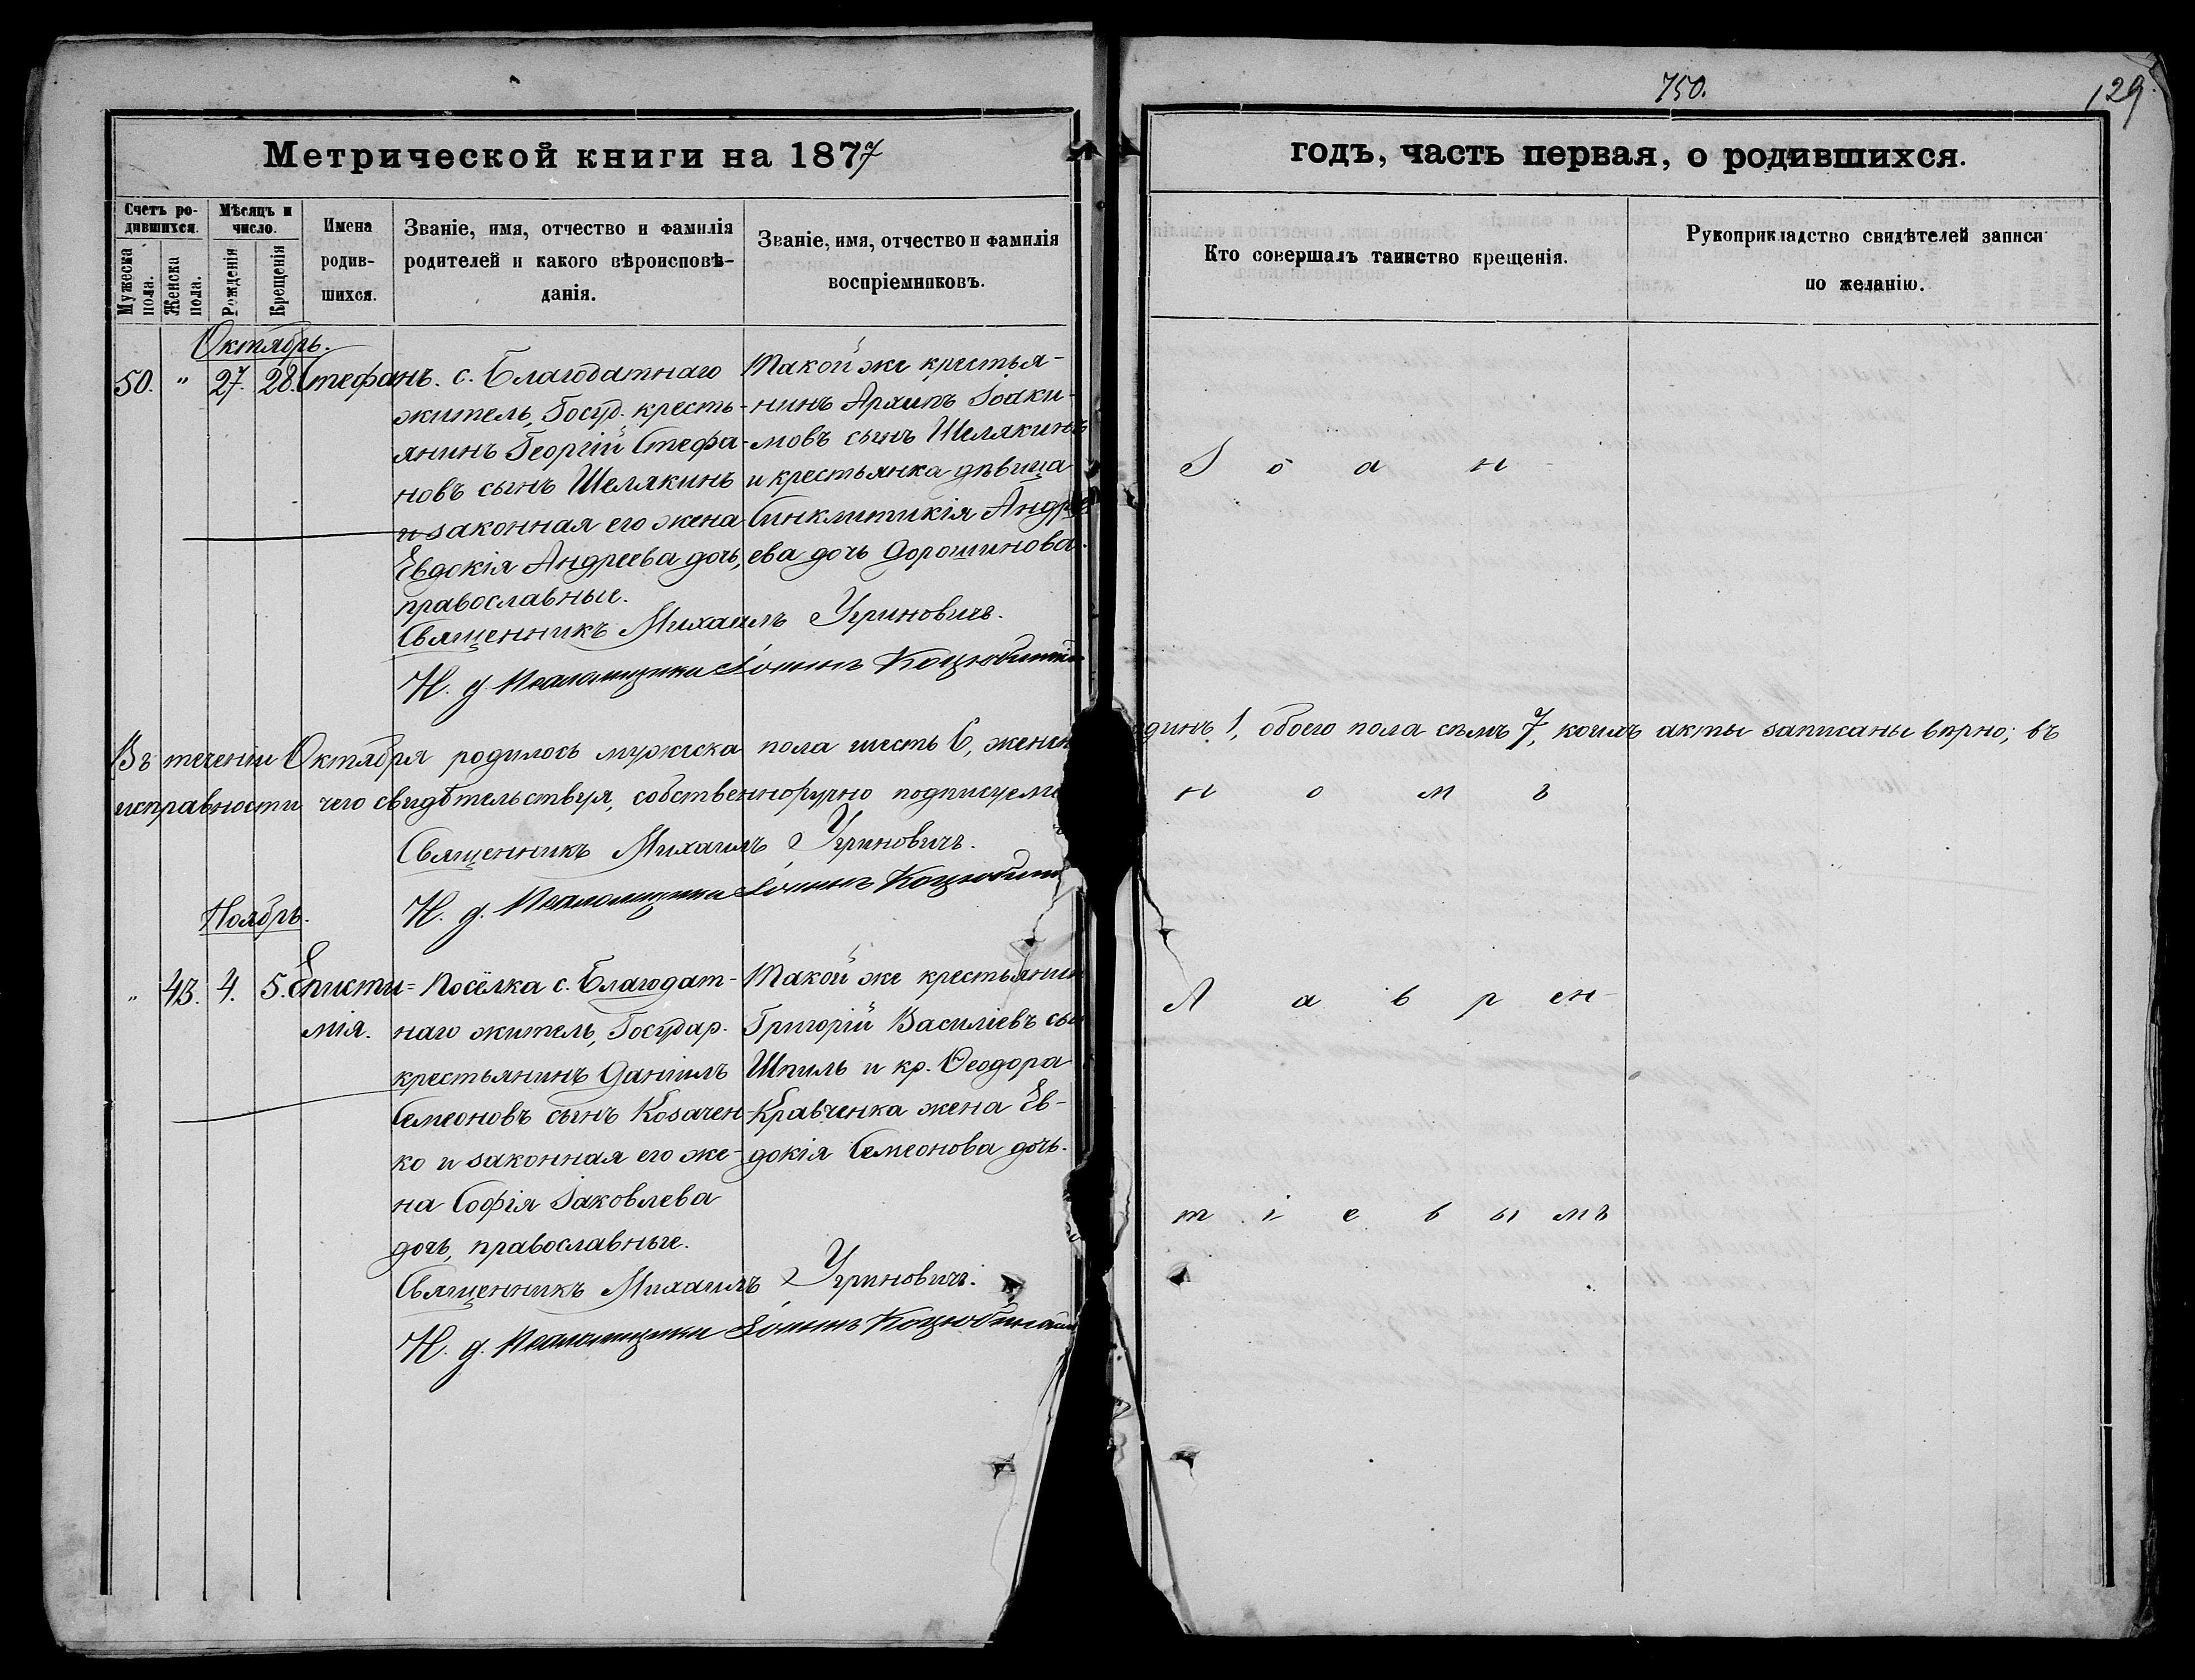 750.
129
Метрической книги на 1877
годъ, часть первая, о родившихся.
Счетъ ро-
дившихся.
Мужеска
пола.
Женска
пола.
Мѣсяцъ и
число.
Рожденія
Крещенія
Имена
родив-
шихся.
Званіе, имя, отчество и фамилія
родителей и какого вѣроисповѣ-
данія.
Званіе, имя, отчество и фамилія
воспріемниковъ.
Кто совершалъ таинство крещенія.
Рукоприкладство свидѣтелей записи
по желанію.
Октябрь.
50. " 27. 28. Стефанъ.
с. Благодатнаго
житель, Госуд. кресть-
янинъ Георгій Стефа-
новъ сынъ Шелякинъ
и законная его жена
Евдокія Андреева дочь,
православные.
Такой же крестья-
нинъ Архипъ Іоаки-
мовъ сынъ Шелякинъ
и крестьянка дѣвица
Синклитикія Андре
ева дочь Дорошинова.
Священникъ Михаилъ Угриновичъ.
И. д. Псаломщика Іоаннъ
І о а н -
Въ теченіи Октября родилось мужеска пола шесть 6, женск одинъ 1, обоего пола семь 7, коимъ акты записаны вѣрно; въ
исправности чего свидѣтельствуя, собственноручно подписуемся
Священникъ Михаилъ Угриновичъ.
И. д. Псаломщика Іоаннъ
н о м ъ
Ноябрь.
" 43. 4. 5. Еписти=
мія.
Посёлка с. Благодат-
наго житель, Государ.
крестьянинъ Даніилъ
Семеоновъ сынъ Козачен-
ко и законная его же-
на Софія Іаковлева
дочь, православные.
Такой же крестьянин
Григорій Василіевъ сы
Шпиль и кр. Ѳеодора
Кравченка жена Ев-
докія Семеонова дочь.
Священникъ Михаилъ Угриновичъ.
И. д. Псаломщика Іоаннъ
Л а в р ен-
т і е в ы мъ